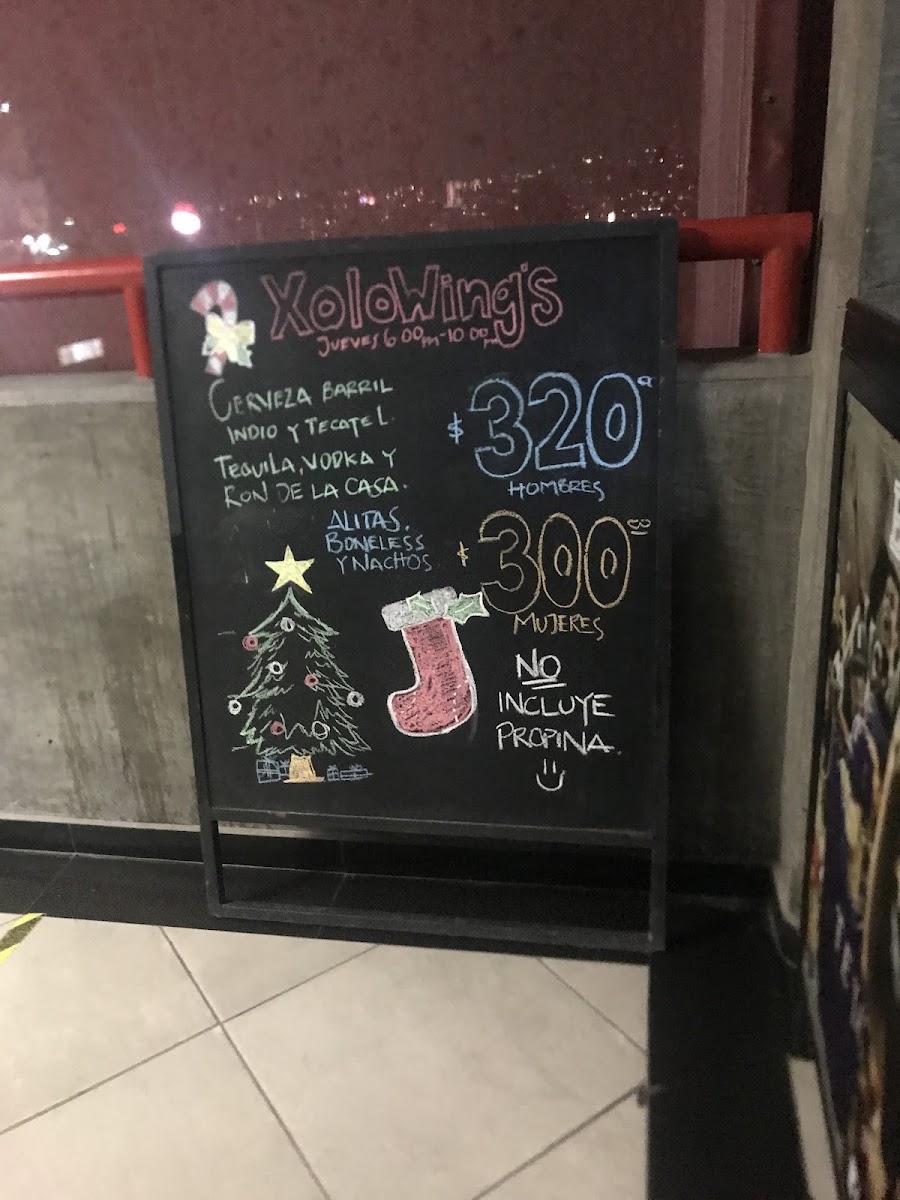 XoloWing's
JUEVES 6:00pm-10:00pm
CERVEZA BARRIL
INDIO Y TECATE L.
TEQUILA, VODKA Y
RON DE LA CASA.
ALITAS,
BONELESS
Y NACHOS
$320
HOMBRES
$300
MUJERES
NO
INCLUYE
PROPINA.